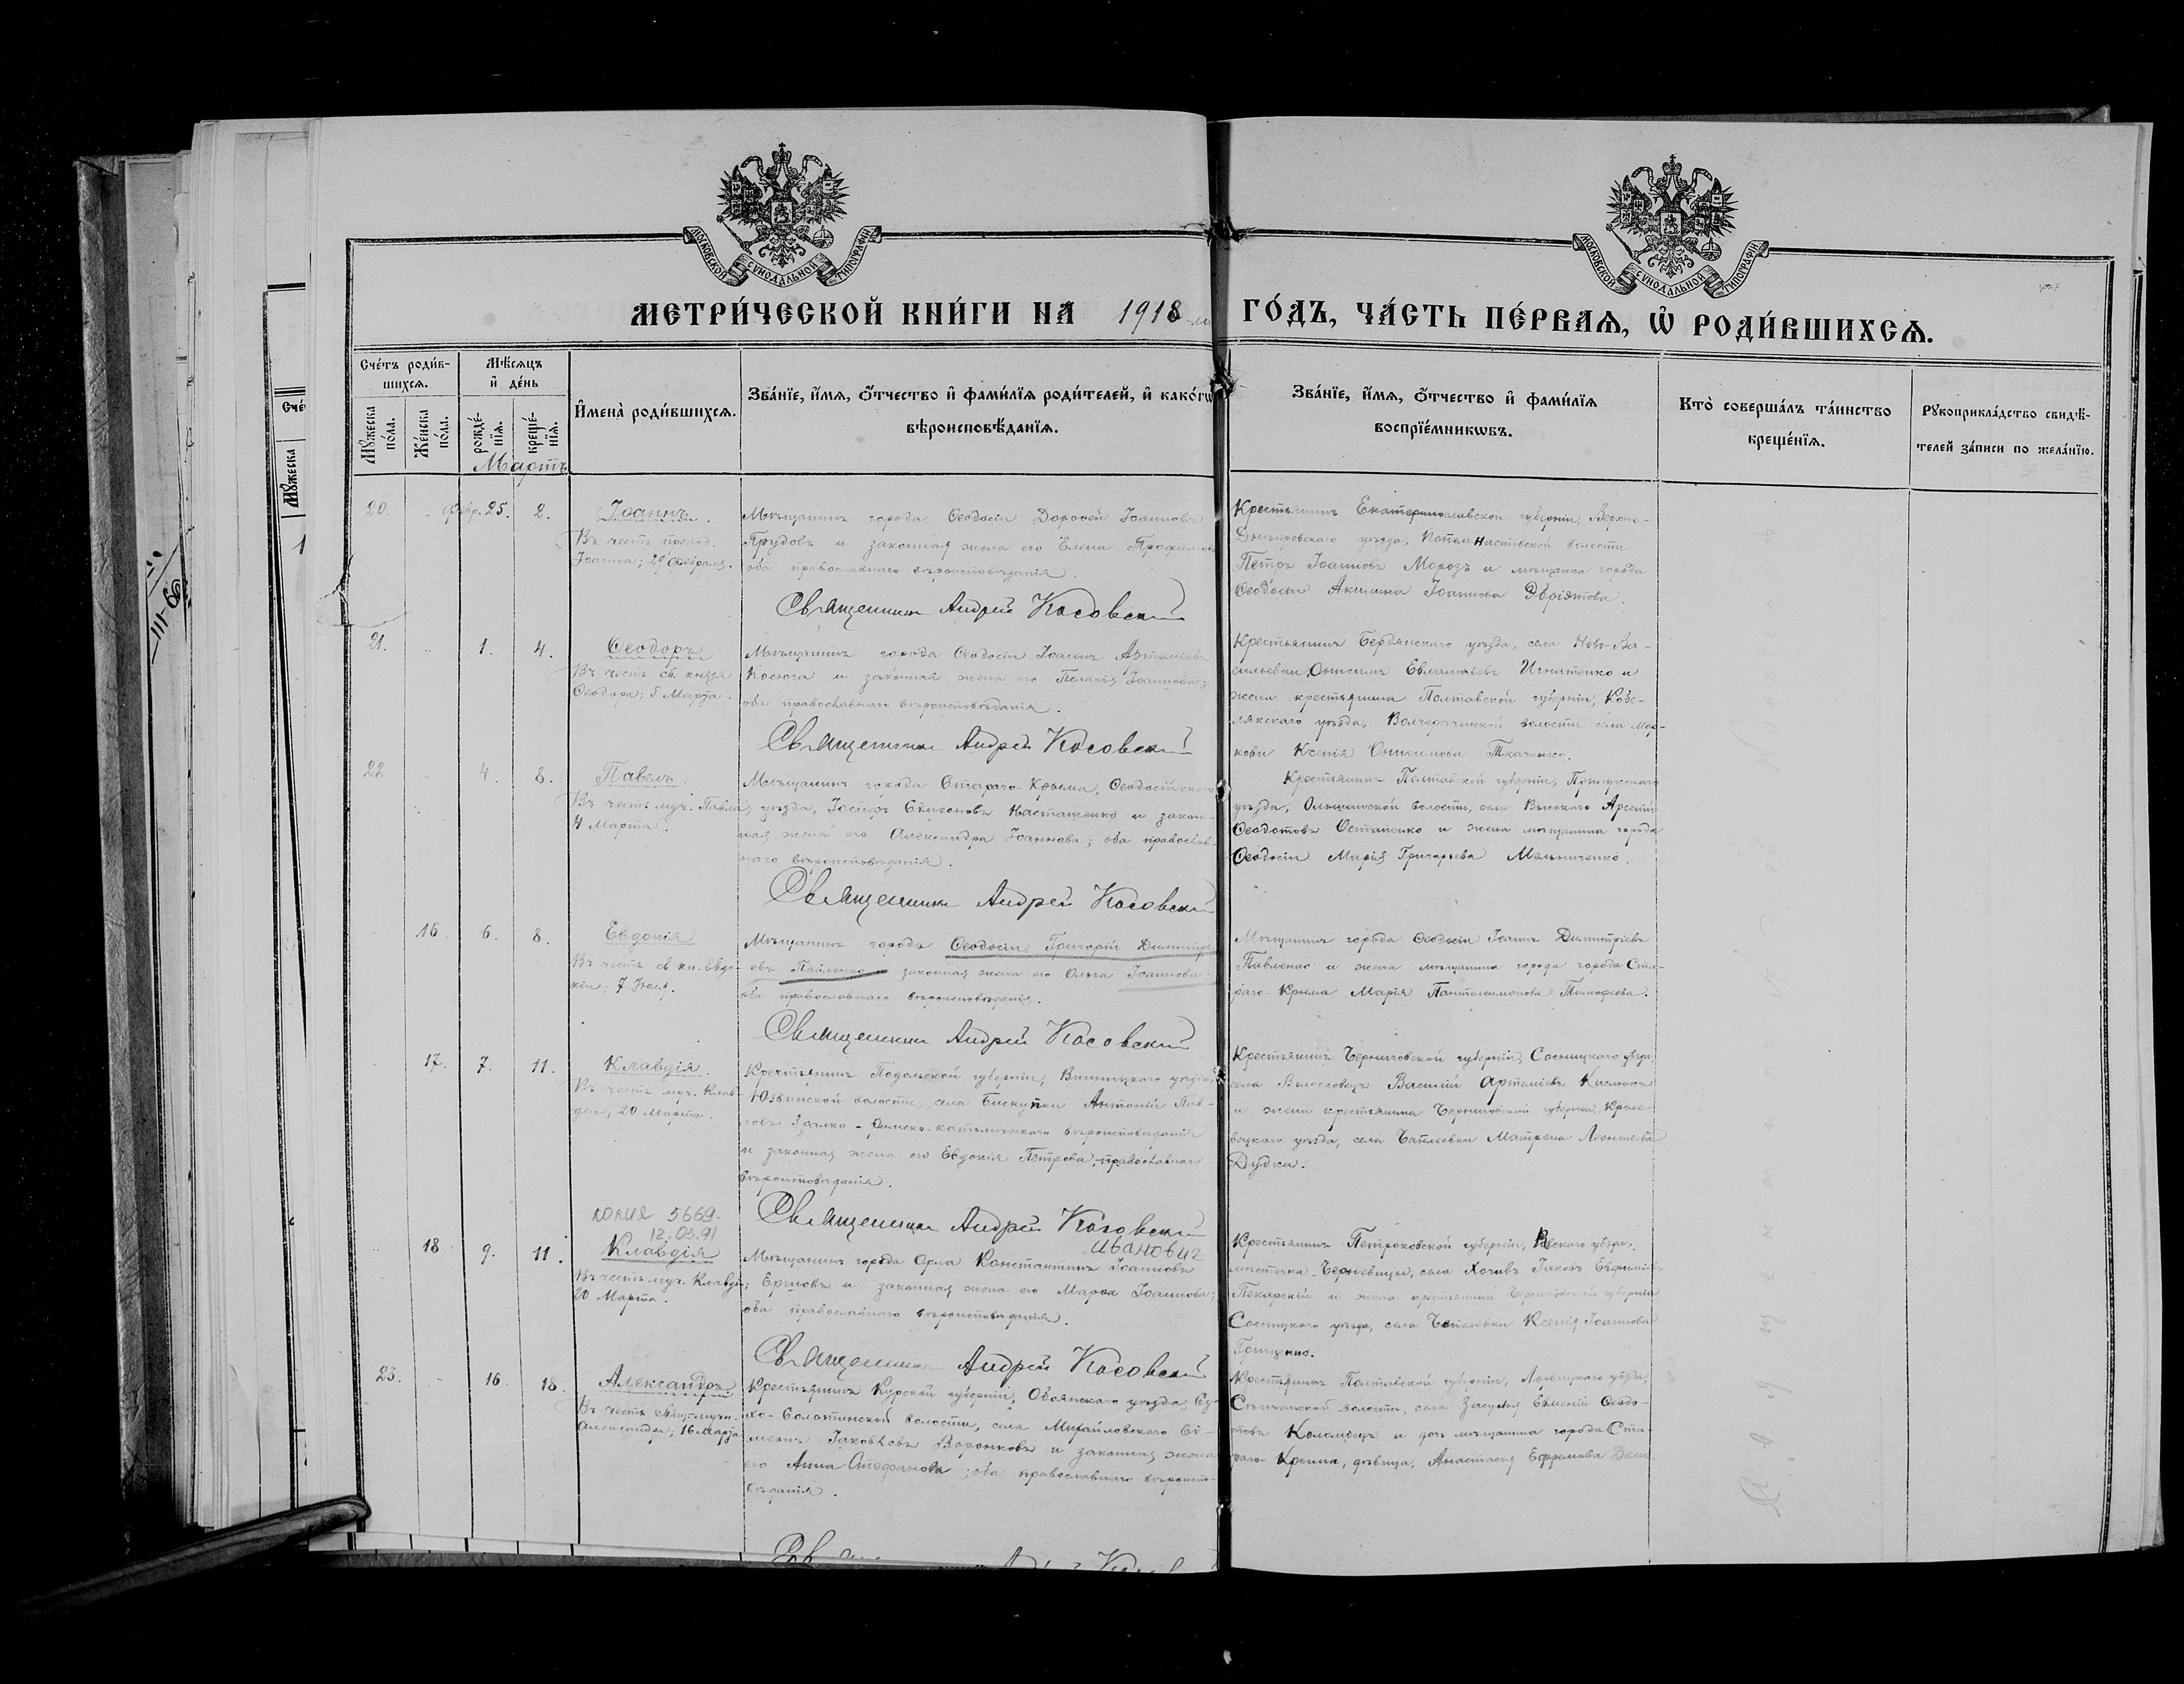 МОСКОВСКОЙ СѴНОДАЛЬНОЙ ТИПОГРАФІИ
МОСКОВСКОЙ СѴНОДАЛЬНОЙ ТИПОГРАФІИ
МЕТРИ́ЧЕСКОЙ КНИ́ГИ НА 1918 ГО́ДЪ, ЧА́СТЬ ПЕ́РВАѦ, Ѡ҆ РОДИ́ВШИХСѦ.
Сче́тъ роди́в-
шихсѧ.
Мѹ́жеска по́ла.
Же́нска по́ла.
Мѣ́сѧцъ
и҆ де́нь
рожде́-
нїѧ.
креще́-
нїѧ.
Мартъ
И҆мена̀ роди́вшихсѧ.
Зва́нїе, и҆́мѧ, ѻ҆́тчество и҆ фами́лїѧ роди́телей, и҆ како́гѡ
вѣроисповѣ́данїѧ.
Зва́нїе, и҆́мѧ, ѻ҆́тчество и҆ фами́лїѧ
воспрїе́мникѡвъ.
Кто̀ соверша́лъ та́инство
креще́нїѧ.
Рѹкоприкла́дство свидѣ́-
телей за́писи по жела́нїю.
20. Февр. 25. 2. Іоаннъ.
Въ честь препод.
Іоанна; 29 февраля.
Мѣщанинъ города Ѳеодосіи Дороѳей Іоанновъ
Прудовъ и законная жена его Елена Трофимова
оба православнаго вѣроисповѣданія.
Священникъ Андрей Косовский
Крестьянинъ Екатеринославской губерніи, Верхне-
Днѣпровскаго уѣзда, волости
Петръ Іоанновъ Морозъ и мѣщанка города
Ѳеодосіи Акилина Іоаннова
21. 1. 4. Ѳеодоръ
Въ честь св. князя
Ѳеодора; 5 Марта.
Мѣщанинъ города Ѳеодосіи Іоаннъ
Косюга и законная жена его Пелагія Іоаннова;
оба православнаго вѣроисповѣданія.
Священникъ Андрей Косовский
Крестьянинъ Бердянскаго уѣзда, села Ново-Ва-
сильевки, Онисимъ Евлампіевъ Игнатенко и
жена крестьянина Полтавской губерніи, Кобе-
лякскаго уѣзда, волости села Мар-
ковки Ксенія Онисимова Ткаченко.
22 4. 8. Павелъ.
Въ честь муч. Павла;
4 Марта.
Мѣщанинъ города Стараго-Крыма, Ѳеодосійскаго
уѣзда, Іосифъ Сѵмеоновъ Насташенко и закон-
ная жена его Александра Іоаннова; оба православ-
наго вѣроисповѣданія.
Священникъ Андрей Косовский
Крестьянинъ Полтавской губерніи, Прилукскаго
уѣзда, Ольшанской волости, села Арсеній
Ѳеодотовъ Остапенко и жена мѣщанина города
Ѳеодосіи Марія Григорьева Мельниченко.
16. 6. 8. Евдокія
Въ честь св. кн. Евдо-
кіи; 7 Іюля.
Мѣщанинъ города Ѳеодосіи Григорій Димитрі-
евъ Павленко и законная жена его Ольга Іоаннова
оба православнаго вѣроисповѣданія.
Священникъ Андрей Косовский
Мѣщанинъ города Ѳеодосіи Іоаннъ Димитріевъ
Павленко и жена мѣщанина города города Ста-
раго-Крыма Марія Пантелеимонова Тимофеева.
17. 7. 11. Клавдія.
Въ честь муч. Клав-
діи, 20 Марта.
Крестьянинъ Подольской губерніи, Винницкаго уѣзда,
Юзвинской волости, села Бискупки Антоній Пав-
ловъ - римско-католическаго вѣроисповѣданія
и законная жена его Евдокія Петрова, православнаго
вѣроисповѣданія.
Священникъ Андрей Косовский
Крестьянинъ Черниговской губерніи, Сосницкаго уѣзда,
села Василій Артеміевъ
и жена крестьянина Черниговской губерніи, Кроле-
вецкаго уѣзда, села Матрона Леонтіева
Дудка.
копия 5669.
12.03.91
18 9. 11. Клавдія
Въ честь муч. Клавдіи;
20 Марта.
Ивановиг
Мѣщанинъ города Орла Константинъ Іоанновъ
Ершовъ и законная жена его Марѳа Іоаннова;
оба православнаго вѣроисповѣданія.
Священникъ Андрей Косовский
Крестьянинъ Петроковской губерніи, уѣзда,
мѣстечка села Іаковъ
Пекарскій и жена крестьянина Черниговской губерніи
Сосницкаго уѣзда, села Ксенія Іоаннова
Грищенко.
23. 16. 18. Александръ
Въ честь
Александра; 16 Марта
Крестьянинъ Курской губерніи, Обоянскаго уѣзда, Су-
хо-Солотинской волости, села Михайловскаго Сѵ-
меонъ Іаковлевъ Воронковъ и законная жена
его Анна Стефанова; оба православнаго вѣроиспо-
вѣданія.
Крестьянинъ Полтавской губерніи, Лохвицкаго уѣзда,
волости, села Засулья Евменій Ѳеодо-
товъ Коломіецъ и дочь мѣщанина города Ста-
раго-Крыма, дѣвица, Анастасія Ефремова